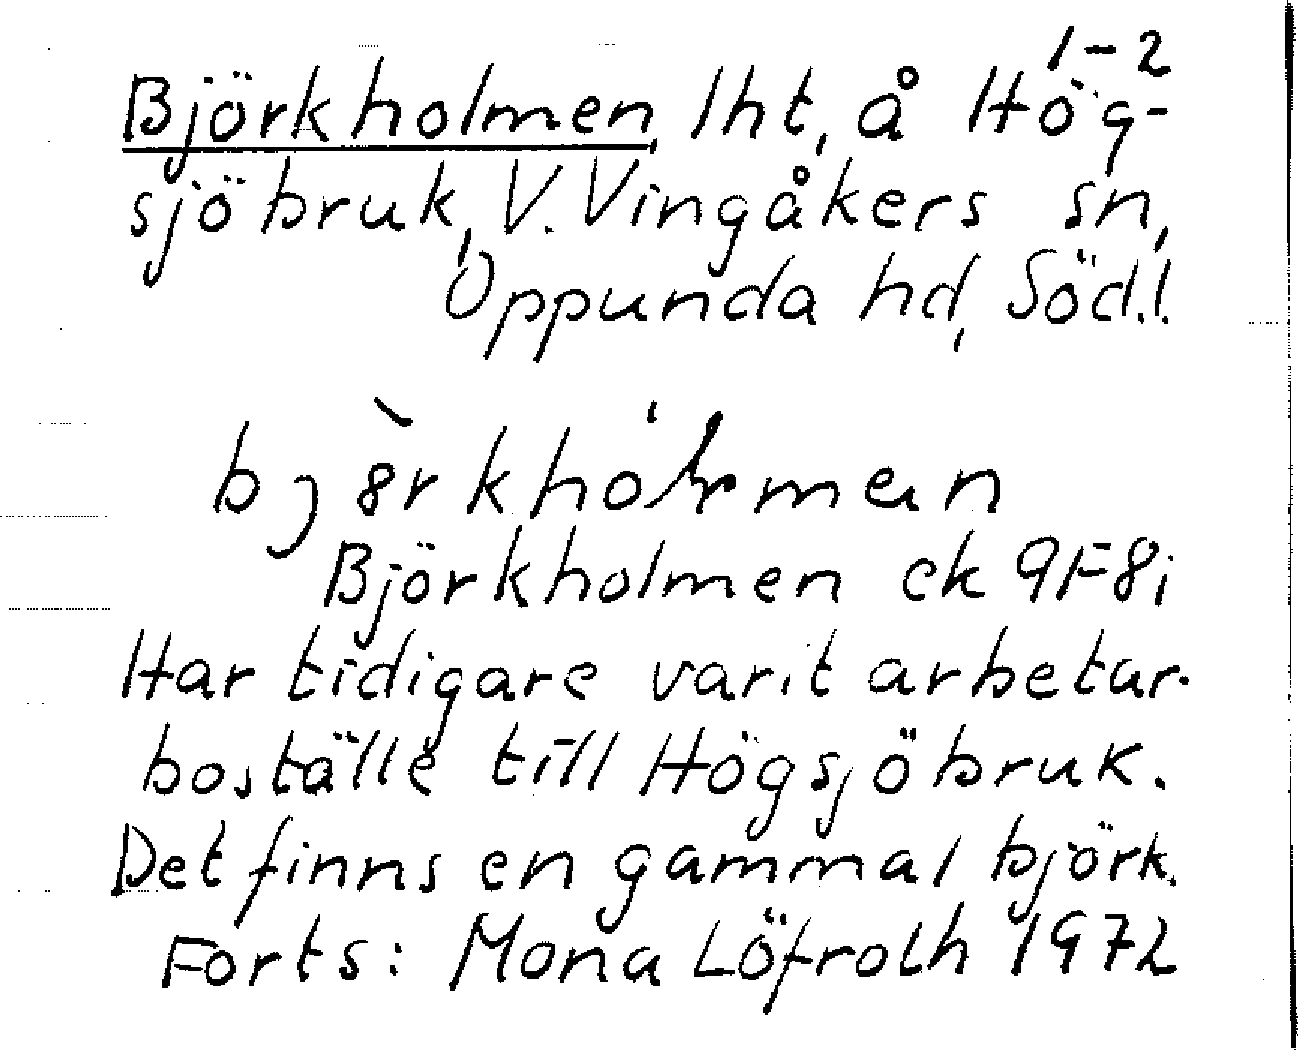 1-2
Björkholmen, lht, å Hög-
sjöbruk, V. Vingåkers sn,
Oppunda hd, Södl.
Björkholmen ek 9F8i
Har tidigare varit arbetar-
boställe till Högsjöbruk.
Det finns en gammal björk.
Forts: Mona Löfroth 1972